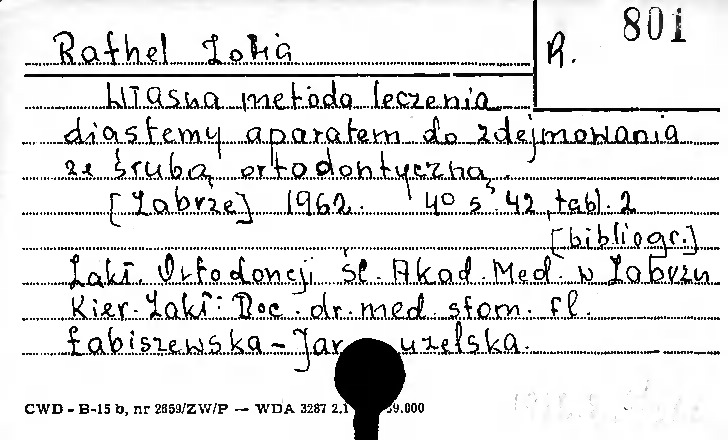 Rafhel Zofia
R. 801
Własna metoda leczenia
diastemy aparatem do zdejmowania
ze śrubą ortodontyczną.
[Zabrze] 1962. 4° s. 42, tabl. 2
[bibliogr.]
Zakł. Ortodoncji Śl. Akad. Med. w Zabrzu
Kier. Zakł: Doc. dr. med stom. Fl.
Łabiszewska-Jar uzelska.
CWD - B-15 b, nr 2659/ZW/P — WDA 3287 2.1 59.000